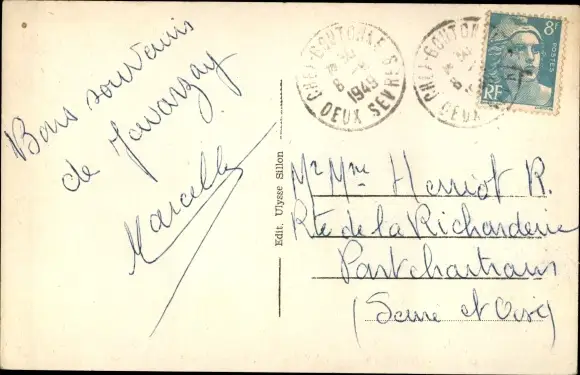 Bons souvenirs
de Javarzay
Marcelle
Edit. Ulysse Sillon
CHEF-BOUTONNE
8
1949
DEUX SEVRES
CHEF-BOUTONNE
8
DEUX
8F
POSTES
RF
Mr Mme Herriot R.
Rte de la Richarderie
Pontchartrain
(Seine et Oise)